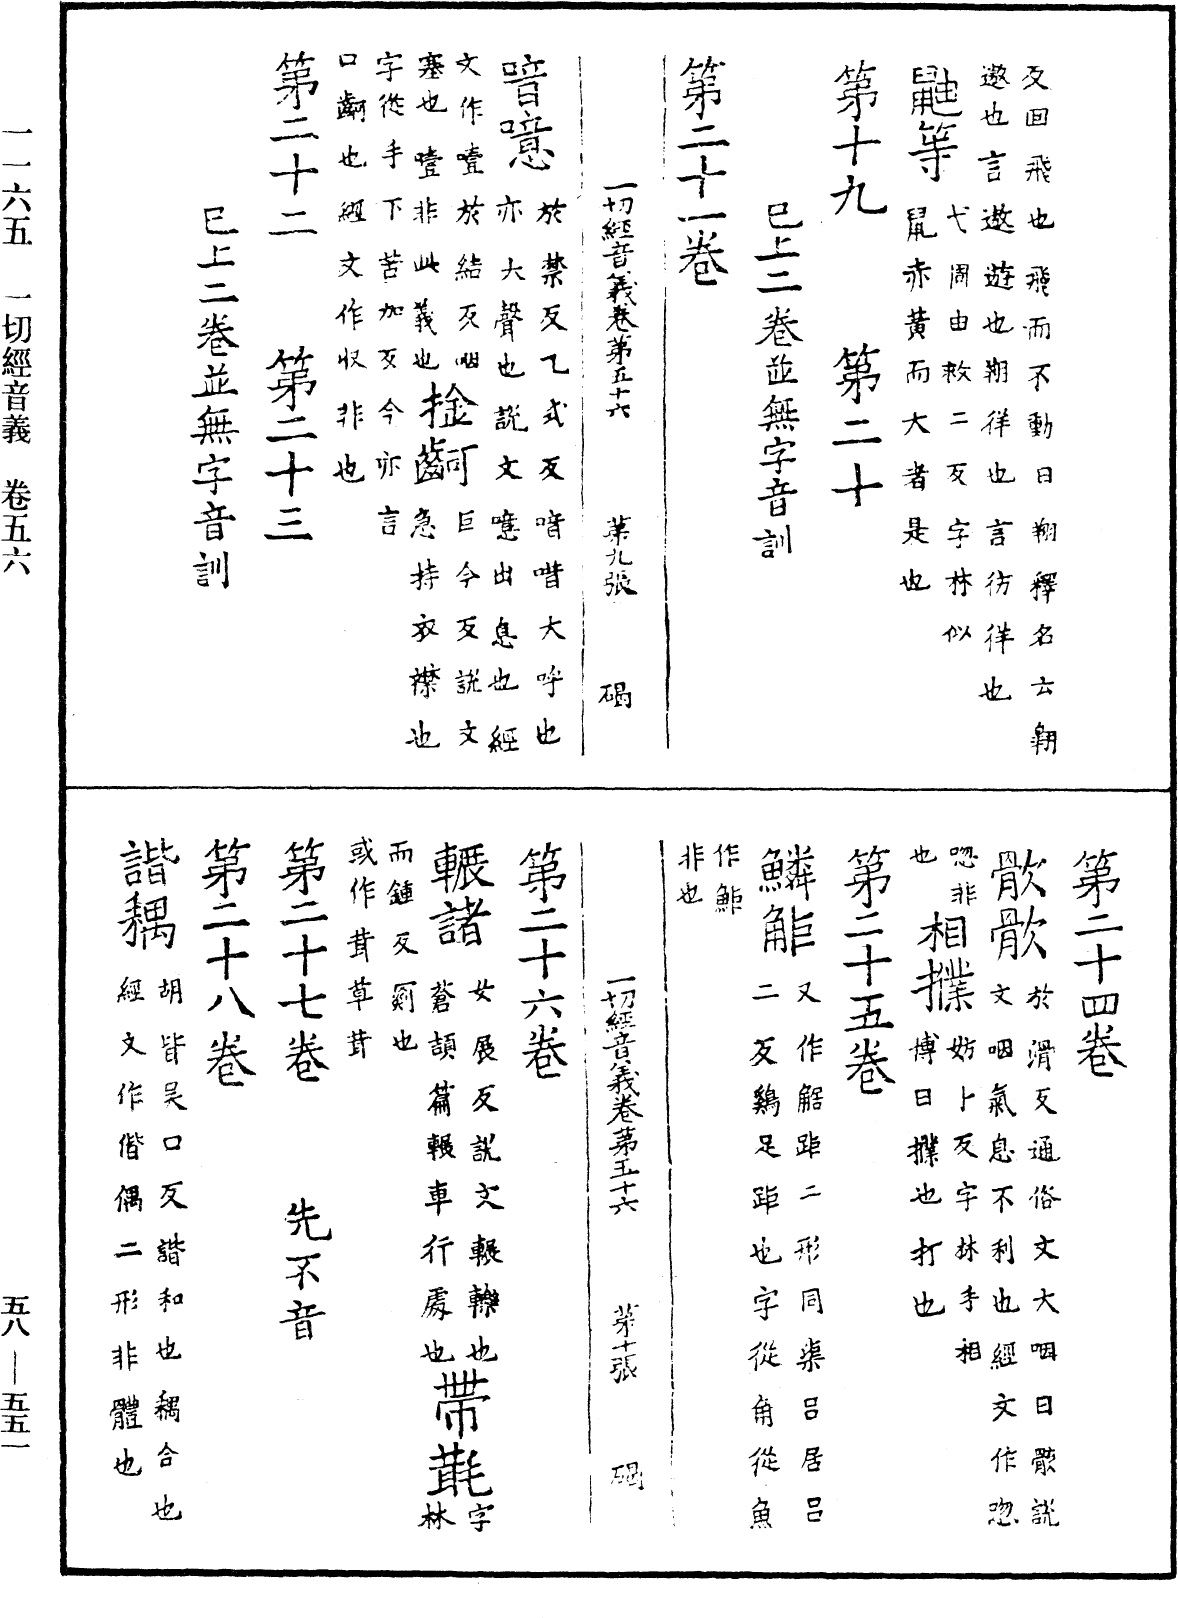 反回飛也飛而不動曰翔釋名云翱
遨也言遨遊也翔徉也言彷徉也
鼬等
弋周由救二反字林似
鼠赤黃而大者是也
第十九　第二十
已上二卷並無字音訓
第二十一卷
一切經音義卷第五十六　第九張　碣
喑噫
於禁反乙戒反喑唶大呼也
亦大聲也說文噫出息也經
文作噎於結反咽
塞也噎非此義也
捦齖
巨今反說文
急持衣襟也
字從手下苦加反今亦言
口齖也經文作収非也
第二十二　第二十三
已上二卷並無字音訓
第二十四卷
㱊㱊
於滑反通俗文大咽曰㱊說
文咽氣息不利也經文作唿
唿非
也
相撲
妨卜反字林手相
博曰撲也打也
第二十五卷
鱗䶙
又作䠧距二形同渠呂居呂
二反鷄足距也字從角從魚
作䱟
非也
一切經音義卷第五十六　第十張　碣
第二十六卷
輾諸
女展反說文輾轢也
蒼頡篇輾車行處也
帶㲨
字
林
而鍾反罽也
或作茸草茸
第二十七卷　先不音
第二十八卷
諧耦
胡皆吳口反諧和也耦合也
經文作偕偶二形非體也
一一六五　一切經音義　卷五六
五八—五五一